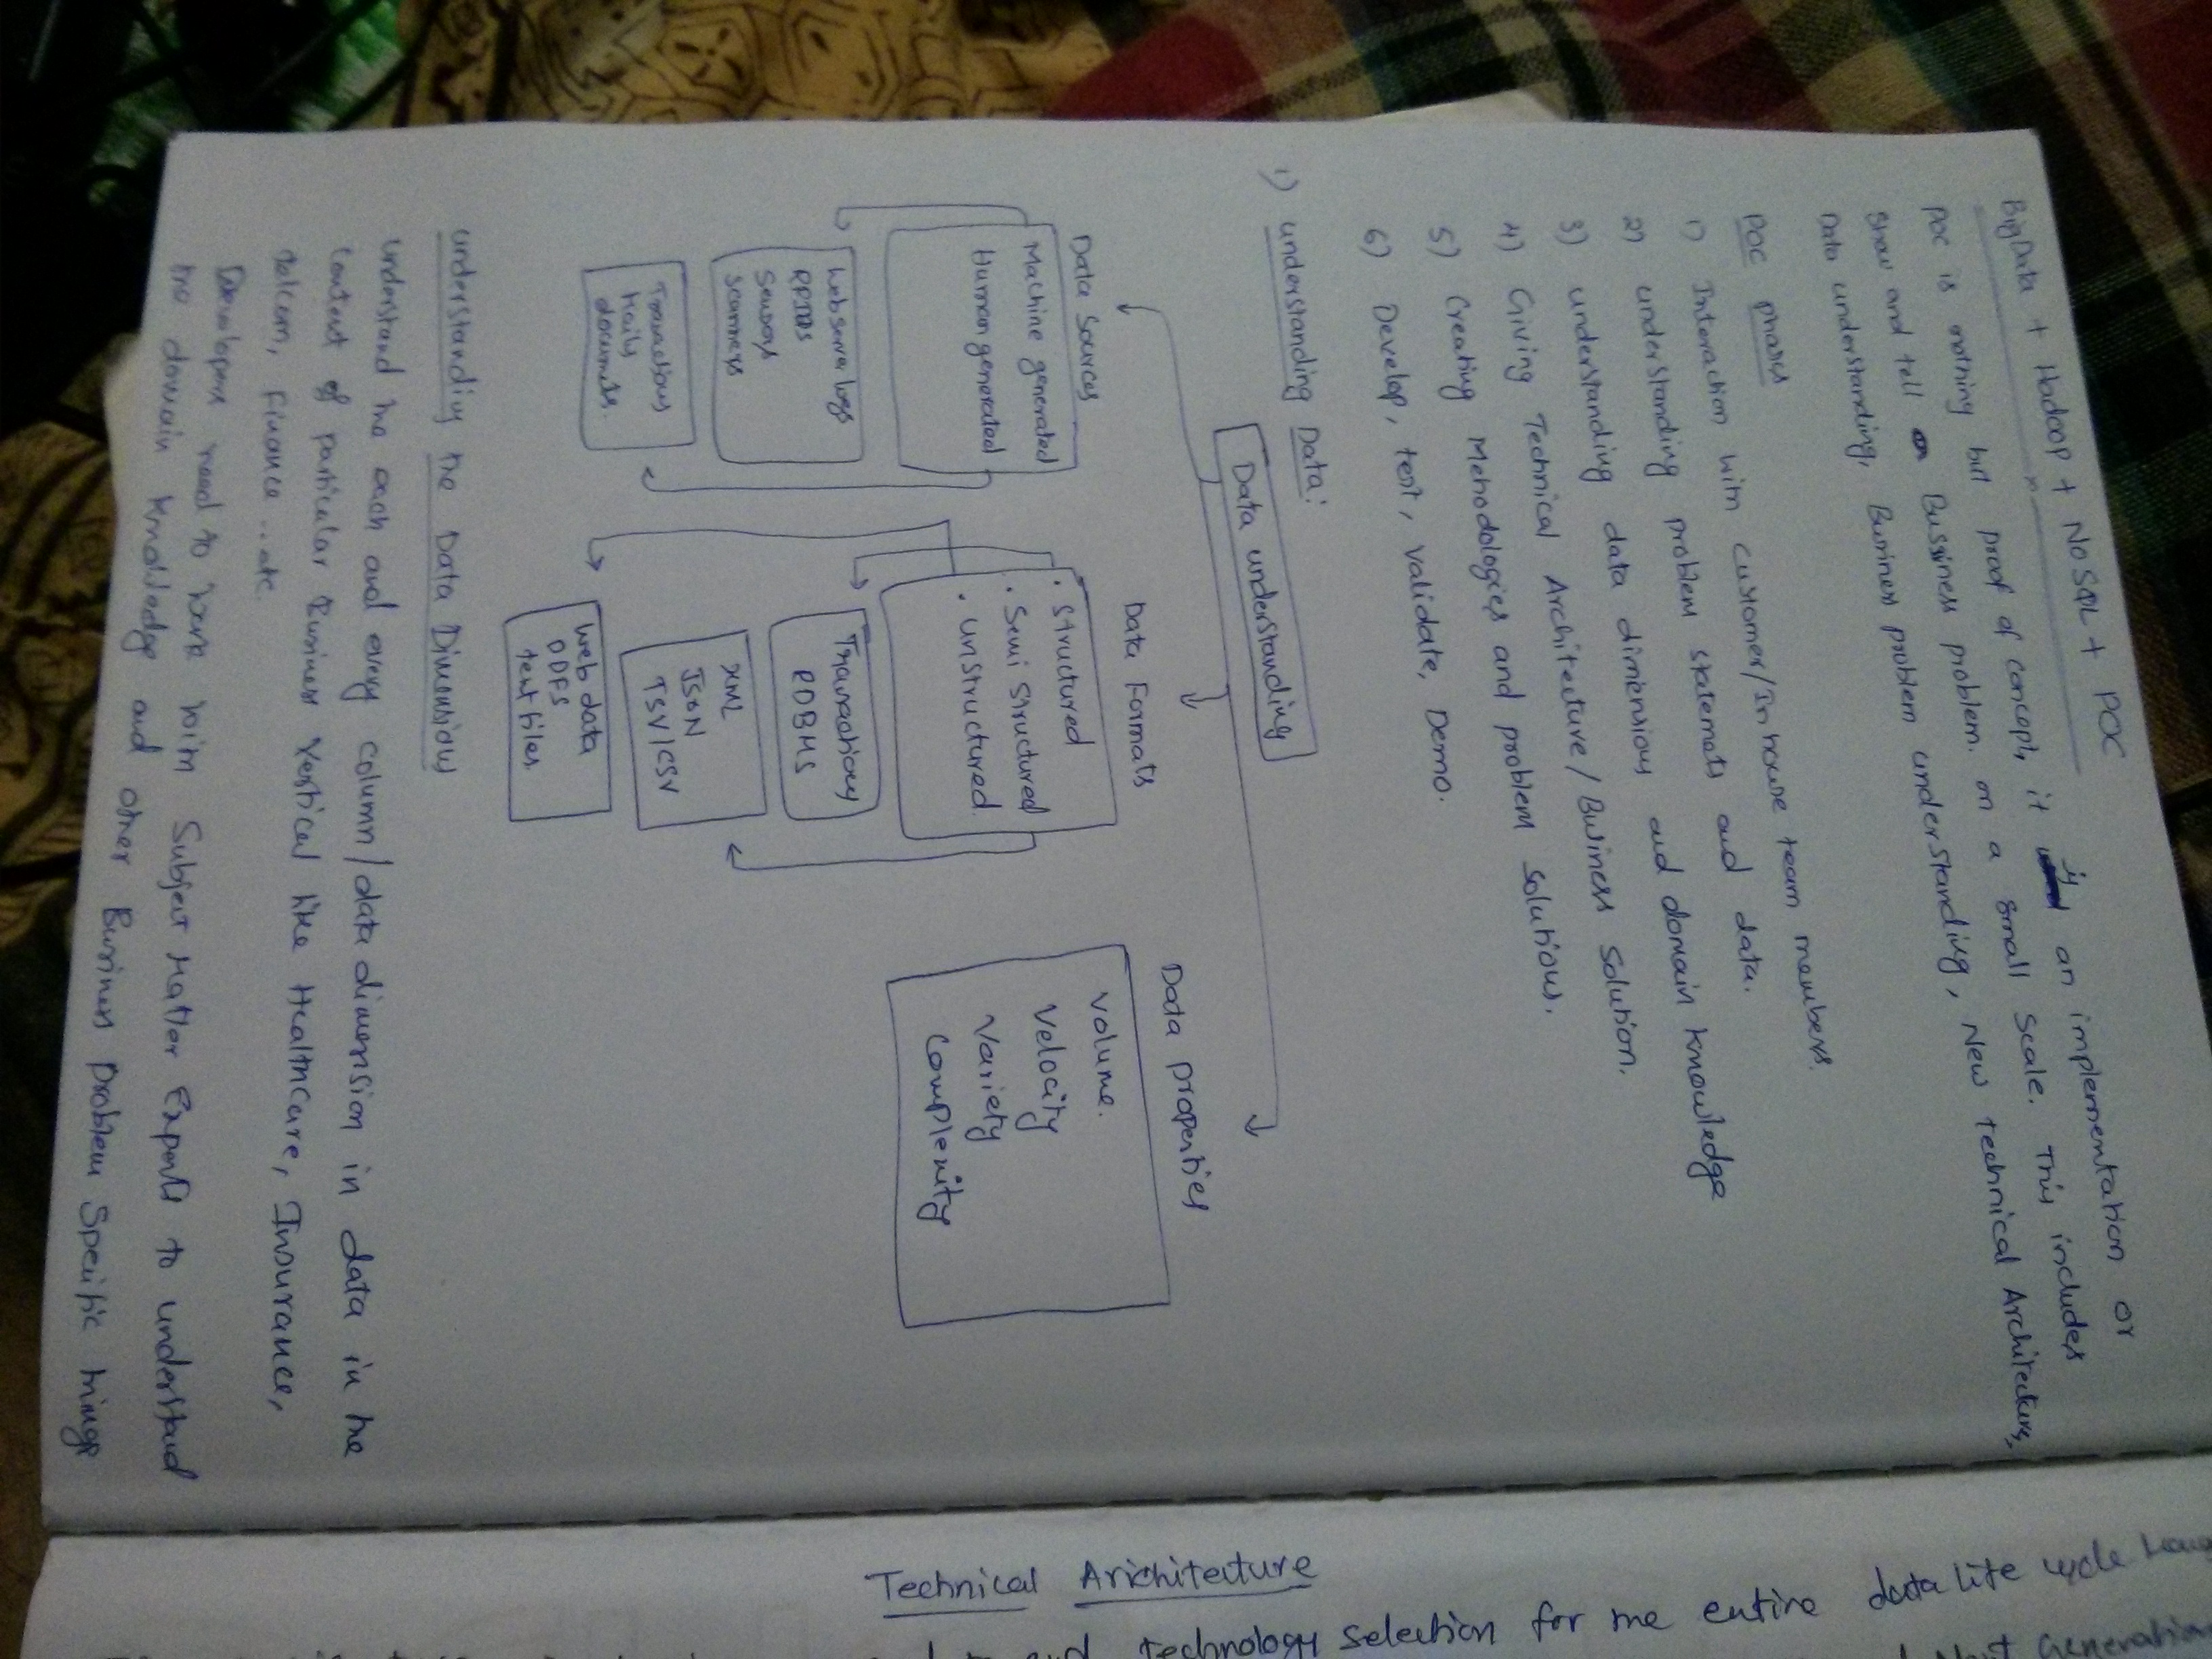 BigData + Hadoop + NoSQL + POC
POC is nothing but proof of concept, it is an implementation or
Show and tell on Bussiness problem. on a small scale. This includes
Data understanding, Business problem understanding, New technical Architecture,
POC phases
1) Interaction with customer/In house team members
2) understanding problem statemets and data.
3) understanding data dimensions and domain knowledge
4) Giving Technical Architecture / Business Solution.
5) Creating Metodologies and problem Solutions.
6) Develop, test, validate, Demo.
1) understanding Data:
Data understanding
Data Sources
Machine generated
Human generated
Web server logs
RFIDS
Sensors
Scanners
Transactions
Mails
documets.
Data Formats
• Structured
• Semi Structured
• unstructured
Transactions
RDBMS
XML
JSON
TSV/CSV
Web data
PDFS
text files.
Data properties
Volume.
Velocity
Variety
Complexity
understanding the Data Dimensions
understand the each and every column/data dimension in data in the
context of particular Business Vertical like Healthcare, Insurance,
Telcom, Finance ...etc.
Developers need to work with Subject Matter Experts to understand
the domain knowledge and other Business problem Specific things
Technical Arichitecture
and technology selection for the entire data life cycle
Generation